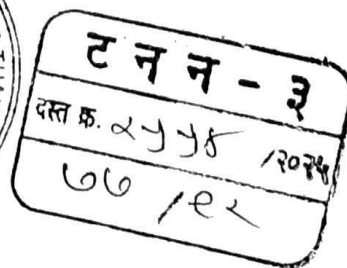 ट न न - ३
दस्त क्र. २५५४ /२०२५
७७ /९२